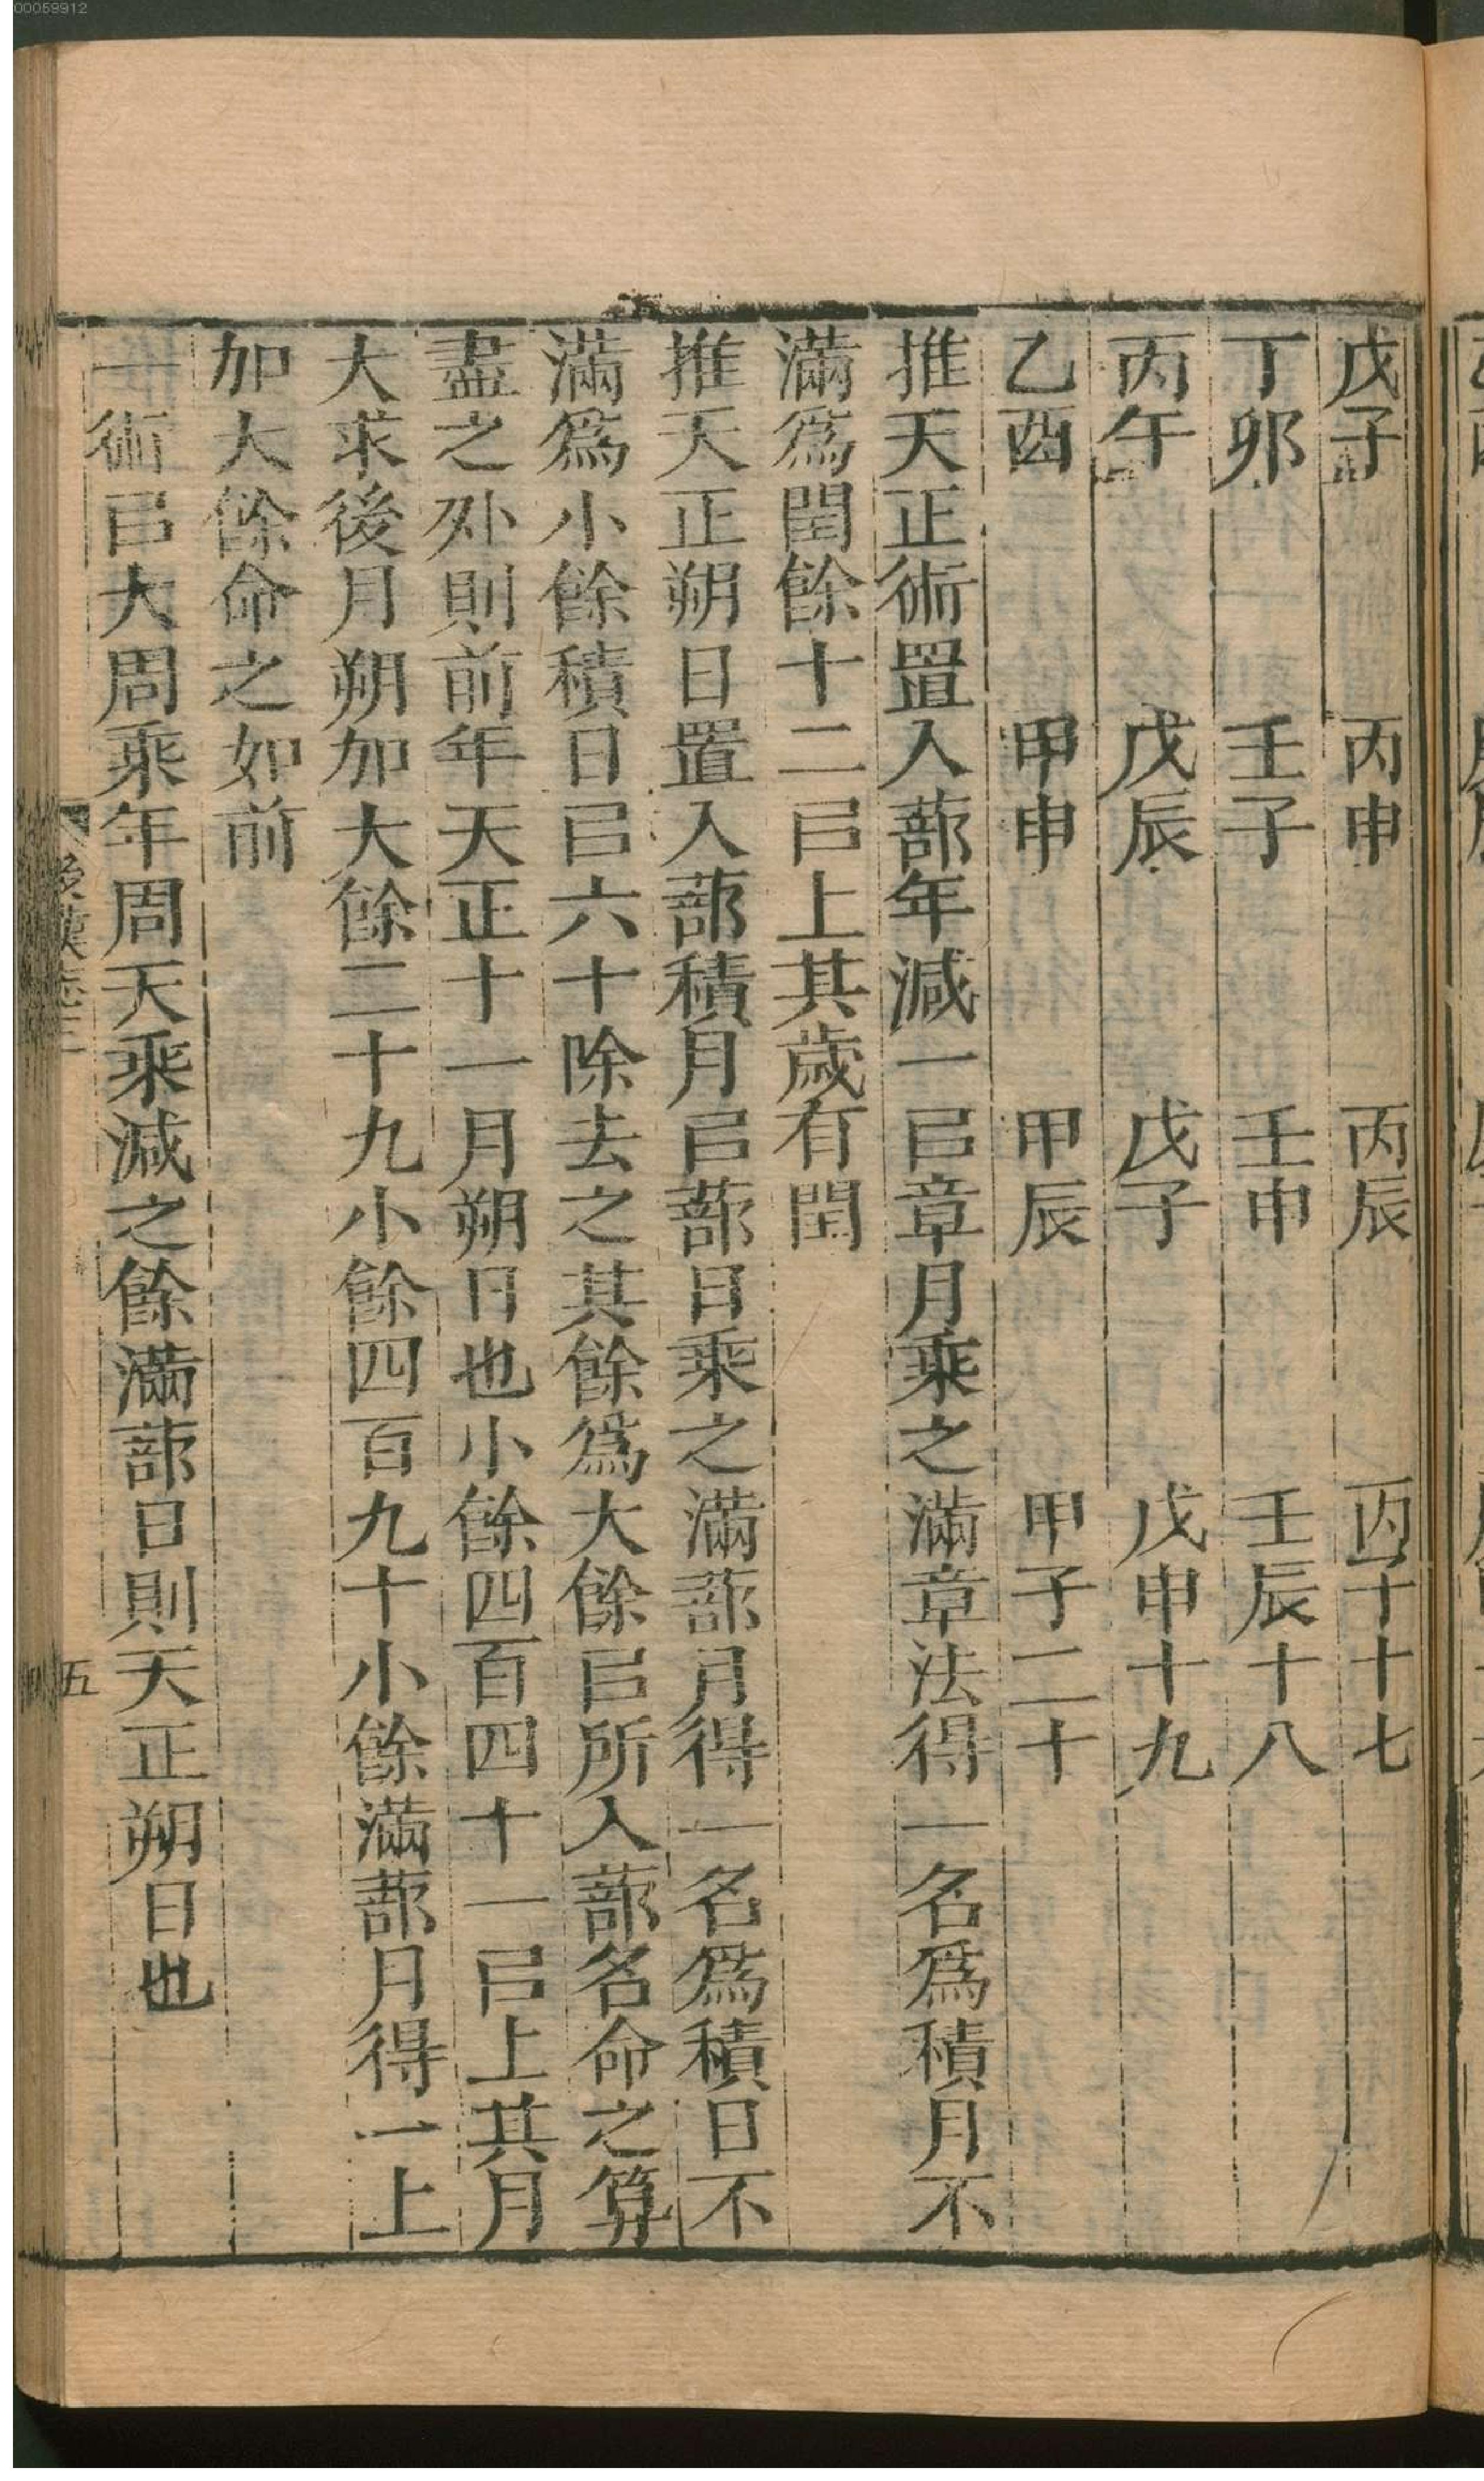 00059912
戊子　丙申　丙辰　丙子十七
丁卯　壬子　壬申　壬辰十八
丙午　戊辰　戊子　戊申十九
乙酉　甲申　甲辰　甲子二十
推天正術置入蔀年減一㠯章月乘之滿章法得一名爲積月不
滿爲閏餘十二㠯上其歲有閏
推天正朔日置入蔀積月㠯蔀日乘之滿蔀月得一名爲積日不
滿爲小餘積日㠯六十除去之其餘爲大餘㠯所入蔀名命之算
盡之外則前年天正十一月朔日也小餘四百四十一㠯上其月
大求後月朔加大餘二十九小餘四百九十小餘滿蔀月得一上
加大餘命之如前
一術㠯大周乘年周天乘減之餘滿蔀日則天正朔日也
後漢志三
五